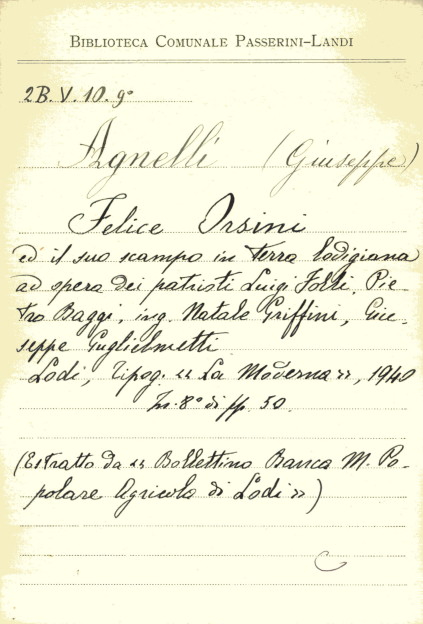 BIBLIOTECA COMUNALE PASSERINI-LANDI
2B.V.10.9°
Agnelli (Giuseppe)
Felice Orsini
ed il suo scampo in terra lodigiana
ad opera dei patrioti Luigi Folli, Pie-
tro Baggi, ing. Natale Griffini, Giu-
seppe Guglielmetti
Lodi, Tipog. « La Moderna », 1940
In 8° di pp. 50.
(Estratto da « Bollettino Banca M. Po-
polare Agricola di Lodi »)
C